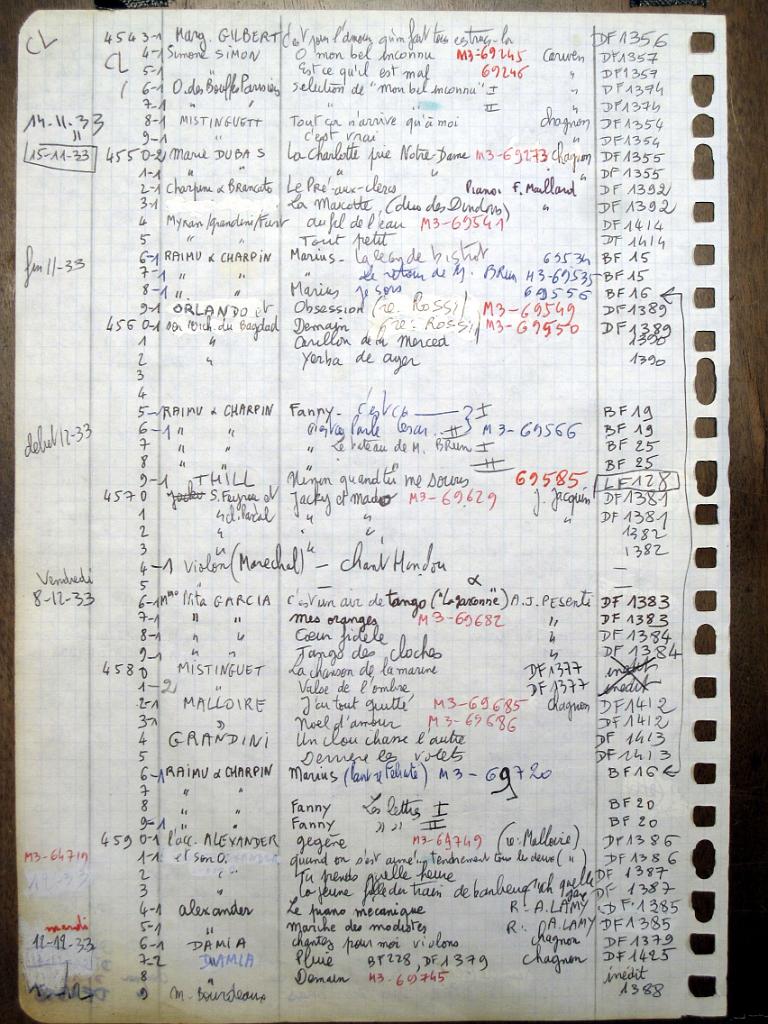 CL 4543-1 Marg. GILBERT c'est pour l'amour qu'on fait tous DF1356
CL 4-1 Simone SIMON O mon bel inconnu M3-69245 Cariven DF1357
5-1 " Est ce qu'il est mal 69246 " DF1357
6-1 O. des Bouffes Parisiens selection de "mon bel inconnu" I " DF1374
7-1 " " II " DF1374
14-11-33 8-1 MISTINGUETT Tout ça n'arrive qu'à moi chagnon DF1354
" 9-1 " c'est vrai " DF1354
15-11-33 4550-2 Marie DUBAS La Charlotte prie Notre-Dame M3-69273 chagnon DF1355
1-1 " " " DF1355
2-1 Charpini & Brancato Le Pré-aux-clercs Piano: F. Maillard DF1392
3-1 La Mascotte (duo des Dindons) " DF1392
4 Myran/grandini/ au fil de l'eau M3-69541 DF1414
5 Tout petit DF1414
fin 11-33 6-1 RAIMU & CHARPIN Marius - La leçon de bistrot 69534 BF15
7-1 " " " Le retour de M. BRUN M3-69535 BF15
8-1 " " Marius je sors 69556 BF16
9-1 ORLANDO et Obsession (re: ROSSI) M3-69549 DF1389
4560-1 son orch. du Bagdad Demain (re: ROSSI) M3-69550 DF1389
1 " Carillon de la Merced 1390
2 " Yerba de ayer 1390
3
4
5-1 RAIMU & CHARPIN Fanny - I BF19
debut 12-33 6-1 " " II M3-69566 BF19
7 " " " Le bateau de M. BRUN I BF25
8 " " II BF25
9-1 THILL Ninon quand tu me souris 69585 LF128
4570 S. Feyrou et Jacky et mado M3-69629 J. Jacquin DF1381
1 " " " DF1381
2 " " 1382
3 " " 1382
4-1 Violon (Marechal) - chant Hindou —
Vendredi 5 —
8-12-33 6-1 Mme Nita GARCIA c'est un air de tango ("La garconne") A.J. PESENTI DF1383
7-1 " " mes oranges M3-69682 " DF1383
8-1 " " Cœur fidele " DF1384
9-1 " " Tango des cloches " DF1384
4580 MISTINGUET La chanson de la marine DF1377 inedit
1-2 " Valse de l'ombre DF1377 inedit
2-1 MALLOIRE J'ai tout quitté M3-69685 chagnon DF1412
3-1 " Noel d'amour M3-69686 DF1412
4 GRANDINI Un clou chasse l'autre DF1413
5 Derriere les volets DF1413
6-1 RAIMU & CHARPIN Marius M3-69720 BF16
7 " "
8 " " Fanny Les lettres I BF20
9-1 " " Fanny " " II BF20
4590-1 l'acc. ALEXANDER gegène M3-69749 (re: Malloire) DF1386
M3-64719 1-1 et son O. quand on s'est aimé... tendrement tous les deux (") DF1386
12-33 2 " Tu prends quelle heure DF1387
3 " La jeune fille du train de banlieue DF1387
4-1 alexander Le piano mecanique R. A. LAMY DF1385
mardi 5-1 " Marche des modistes R. A. LAMY DF1385
12-12-33 6-1 DAMIA chantez pour moi violons chagnon DF1379
7-2 DAMIA Pluie BF228, DF1379 chagnon DF1425
8 " Demain M3-69745 inédit
9 M. Bourdeaux 1388